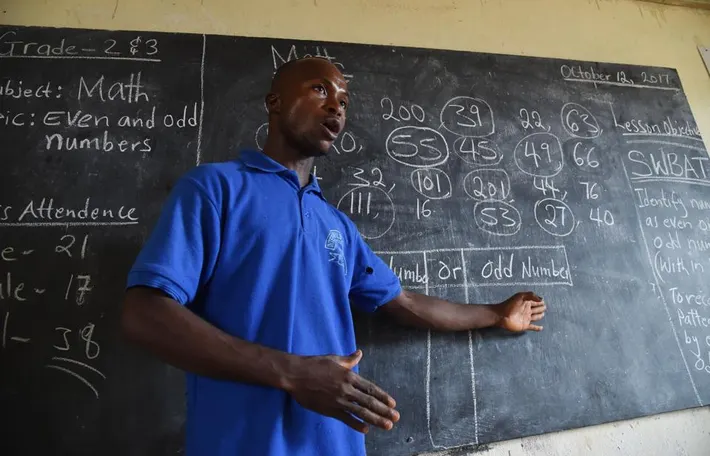 Grade-2 & 3
Subject: Math
Topic: Even and odd
numbers
Attendence
21
17
38
Math
200, 39, 22, 63
53, 45, 49, 66
32, 101, 201, 44, 76
111, 16, 53, 27, 40
or Odd Number
October 12, 2017
Lesson Objective
SWBAT
Identify
as even or
odd num
(Within
To reco
Patter
by